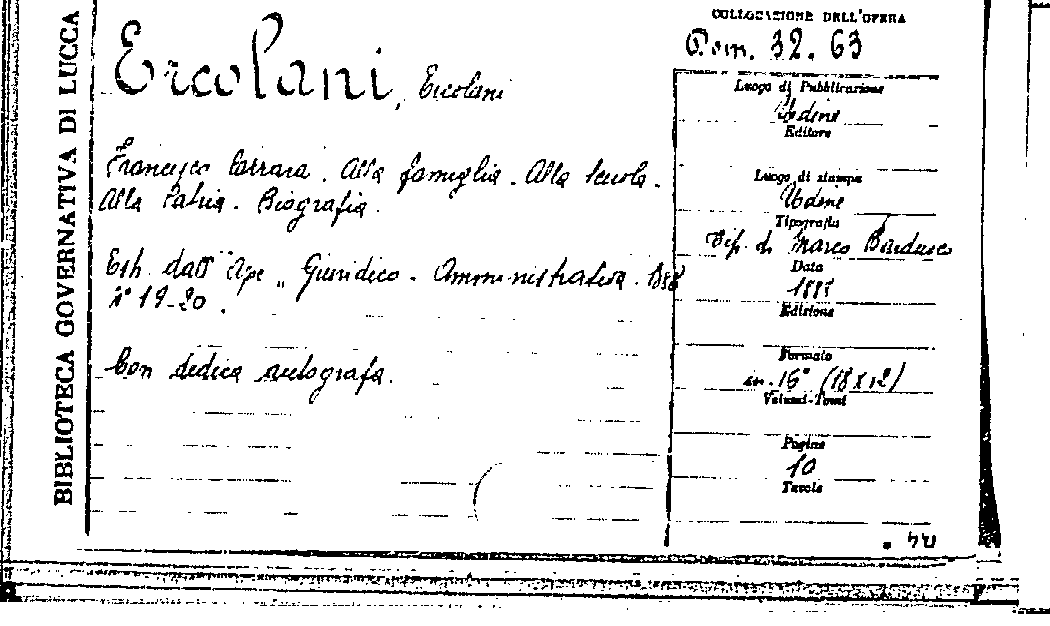 BIBLIOTECA GOVERNATIVA DI LUCCA
Ercolani, Ercolani
Francesco Carrara. Alla famiglia. Alla Scuola.
Alla Patria. Biografia.
Estr. dall' "Ape" Giuridico - Amministrativa.
n° 19-20.
Con dedica autografa.
COLLOCAZIONE DELL'OPERA
32. 63
Luogo di Pubblicazione
Udine
Editore
Luogo di stampa
Udine
Tipografia
Tip. di Marco Bardusco
Data
Edizione
Formato
in-16° (18x12)
Volumi-Tomi
Pagine
10
Tavole